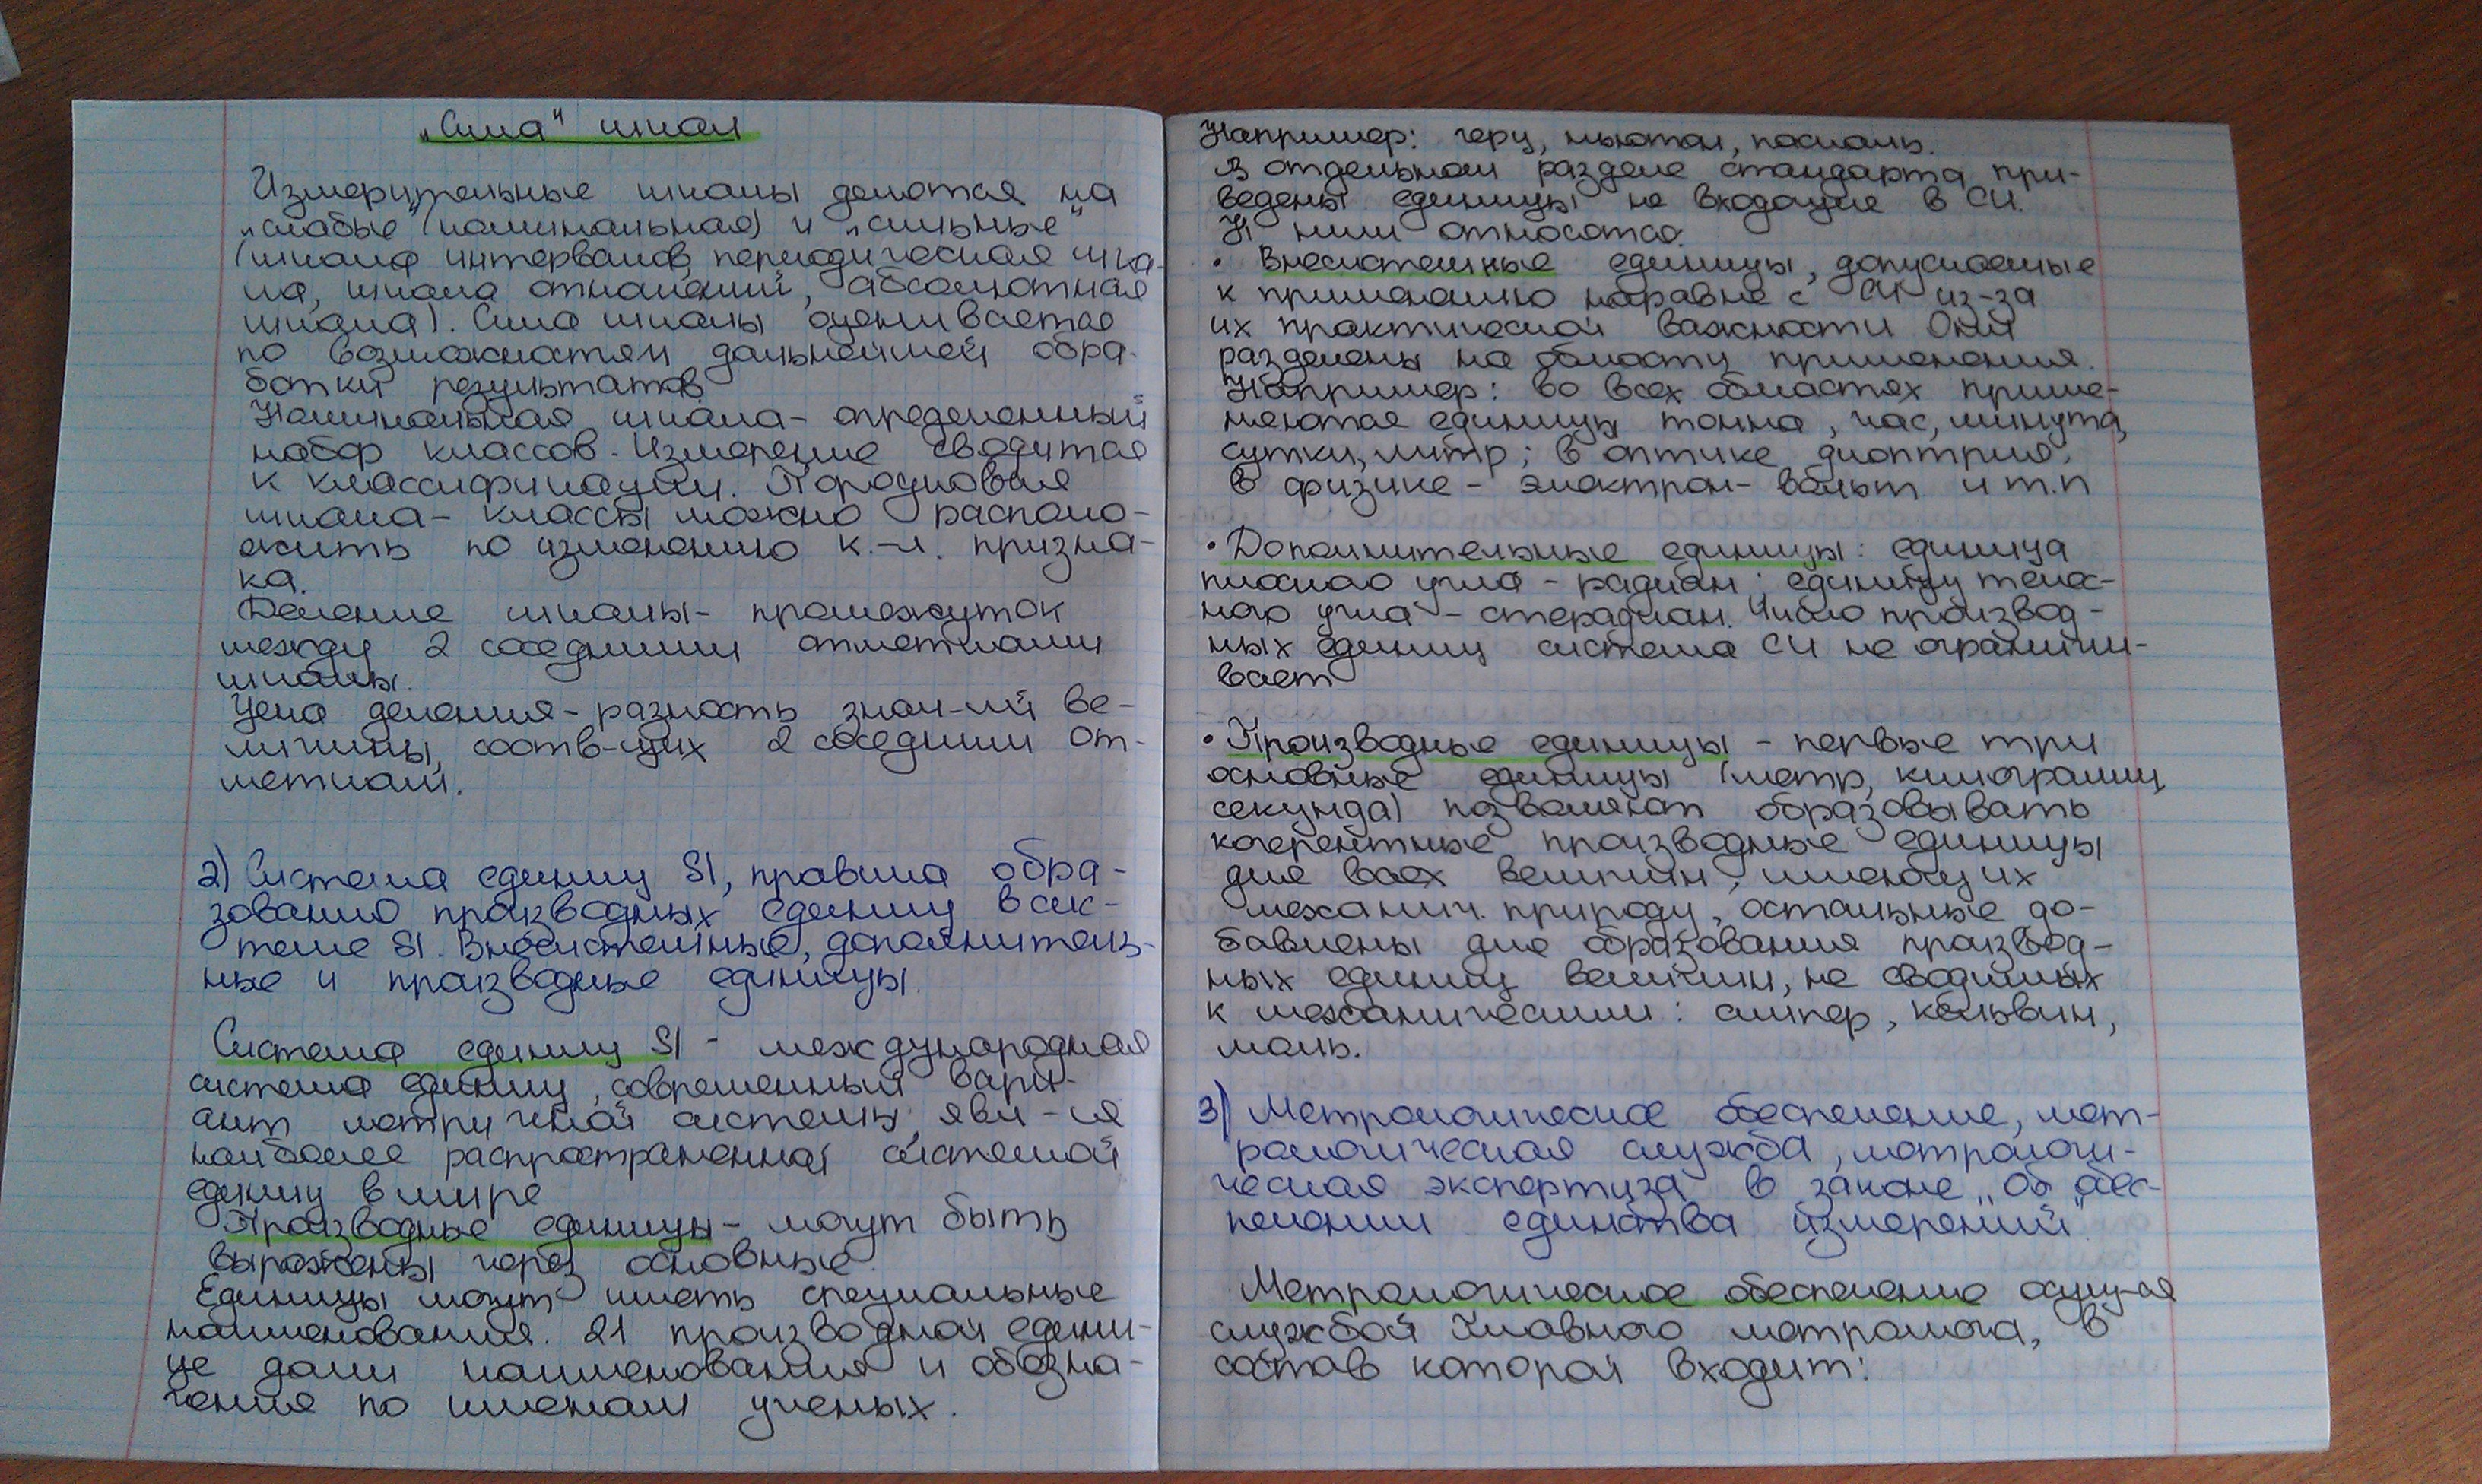 „Сила" шкал
Измерительные шкалы делятся на
„слабые" (номинальная) и „сильные"
(шкала интервалов, периодическая шка-
ла, шкала отношений, абсолютная
шкала). Сила шкалы оценивается
по возможностям дальнейшей обра-
ботки результатов
Номинальная шкала - определенный
набор классов. Измерение сводится
к классификации. Порядковая
шкала - классы можно располо-
жить по изменению к.-л. призна-
ка.
Деление шкалы - промежуток
между 2 соседними отметками
шкалы.
Цена деления - разность знач-ий ве-
личины, соотв-щих 2 соседним от-
меткам.
2) Система единиц SI, правила обра-
зования производных единиц в сис-
теме SI. Внесистемные, дополнитель-
ные и производные единицы.
Система единиц SI - международная
система единиц, современный вари-
ант метрической системы, явл-ся
наиболее распространенной системой
единиц в мире
Производные единицы - могут быть
выражены через основные.
Единицы могут иметь специальные
наименования. 21 производной едини-
це дали наименования и обозна-
чения по именам ученых.
Например: герц, ньютон, паскаль.
В отдельном разделе стандарта при-
ведены единицы не входящие в СИ.
К ним относятся:
• Внесистемные единицы, допускаемые
к применению наравне с СИ из-за
их практической важности Они
разделены на области применения.
Например: во всех областях приме-
няются единицы тонна, час, минута,
сутки, литр; в оптике диоптрия,
в физике - электрон-вольт и т.п
• Дополнительные единицы: единица
плоского угла - радиан; единицу телес-
ного угла - стерадиан. Число производ-
ных единиц система СИ не ограничи-
вает
• Производные единицы - первые три
основные единицы (метр, килограмм,
секунда) позволяют образовывать
когерентные производные единицы
для всех величин, имеющих
механич. природу, остальные до-
бавлены для образования производ-
ных единиц величин, не сводимых
к механическим: ампер, кельвин,
моль.
3) Метрологическое обеспечение, мет-
рологическая служба, метрологи-
ческая экспертиза в законе „Об обес-
печении единства измерений"
Метрологическое обеспечение осущ-ся
службой Главного метролога, в
состав которой входит: